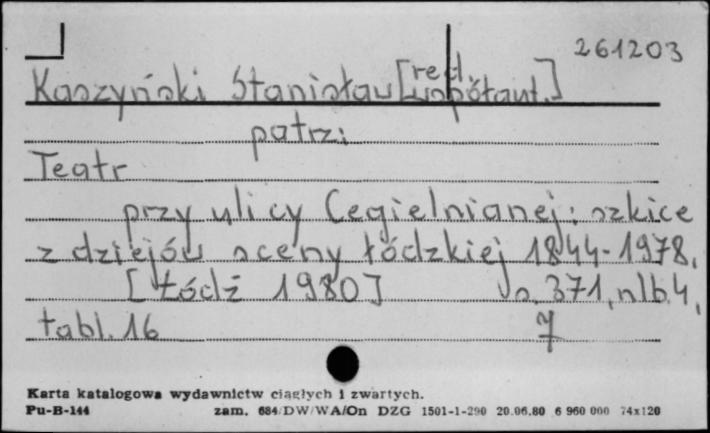 261203
Kaszyński Stanisław [red. współaut.]
patrz:
Teatr
przy ulicy Cegielnianej: szkice
z dziejów sceny łódzkiej 1844-1978.
[Łódź 1980] s. 371, nlb 4,
tabl. 16 7
Karta katalogowa wydawnictw ciągłych i zwartych.
Pu-B-144 zam. 684/DW/WA/On DZG 1501-1-290 20.06.80 6 960 000 74x120